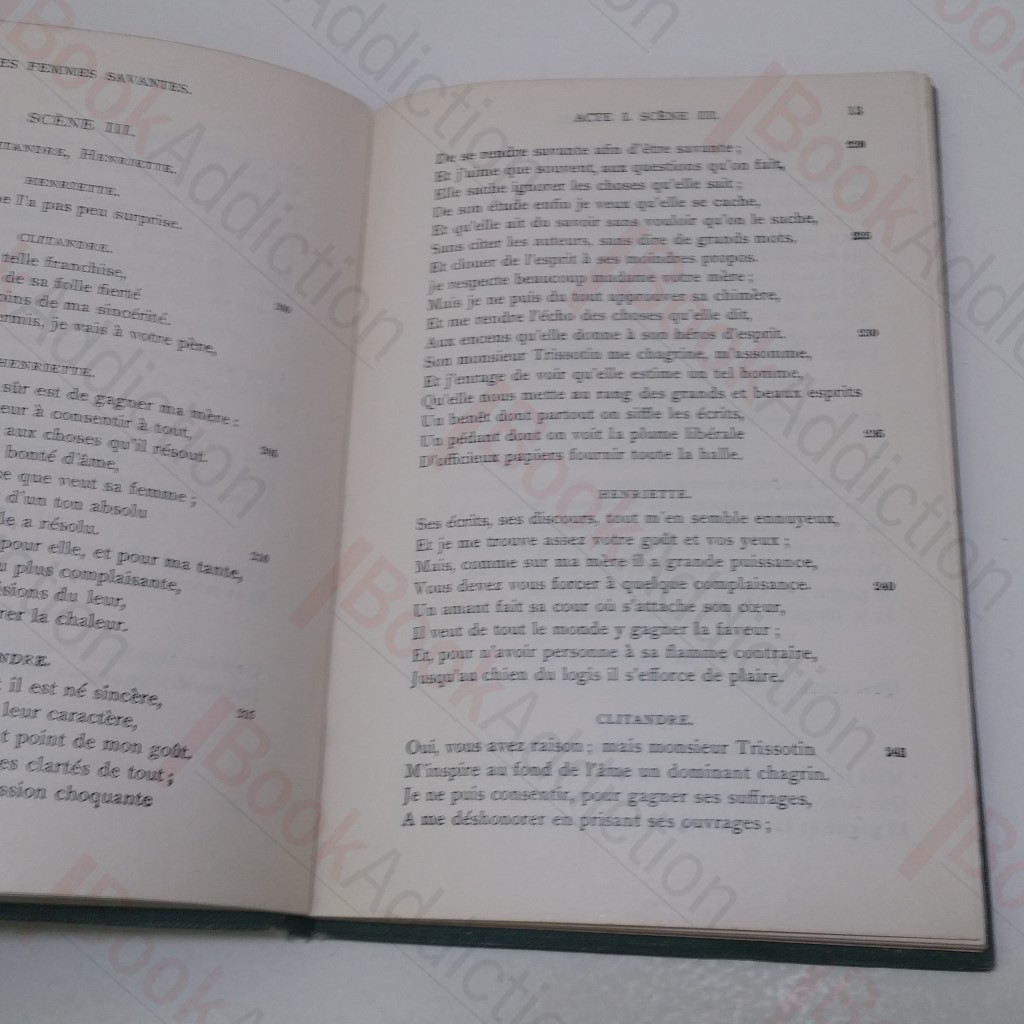 ES FEMMES SAVANTES.
SCÈNE III.
ITANDRE, HENRIETTE.
HENRIETTE.
e l'a pas peu surprise.
CLITANDRE.
telle franchise,
de sa folle fierté
oins de ma sincérité. 200
ermis, je vais à votre père,
HENRIETTE.
sûr est de gagner ma mère :
eur à consentir à tout,
aux choses qu'il résout. 205
bonté d'âme,
ce que veut sa femme ;
d'un ton absolu
le a résolu.
pour elle, et pour ma tante, 210
u plus complaisante,
isions du leur,
rer la chaleur.
NDRE.
t il est né sincère,
leur caractère, 215
t point de mon goût.
es clartés de tout ;
ssion choquante
ACTE I. SCÈNE III. 13
De se rendre savante afin d'être savante ; 220
Et j'aime que souvent, aux questions qu'on fait,
Elle sache ignorer les choses qu'elle sait ;
De son étude enfin je veux qu'elle se cache,
Et qu'elle ait du savoir sans vouloir qu'on le sache,
Sans citer les auteurs, sans dire de grands mots, 225
Et clouer de l'esprit à ses moindres propos.
Je respecte beaucoup madame votre mère ;
Mais je ne puis du tout approuver sa chimère,
Et me rendre l'écho des choses qu'elle dit,
Aux encens qu'elle donne à son héros d'esprit. 230
Son monsieur Trissotin me chagrine, m'assomme,
Et j'enrage de voir qu'elle estime un tel homme,
Qu'elle nous mette au rang des grands et beaux esprits
Un benêt dont partout on siffle les écrits,
Un pédant dont on voit la plume libérale 235
D'officieux papiers fournir toute la halle.
HENRIETTE.
Ses écrits, ses discours, tout m'en semble ennuyeux,
Et je me trouve assez votre goût et vos yeux ;
Mais, comme sur ma mère il a grande puissance,
Vous devez vous forcer à quelque complaisance. 240
Un amant fait sa cour où s'attache son cœur,
Il veut de tout le monde y gagner la faveur ;
Et, pour n'avoir personne à sa flamme contraire,
Jusqu'au chien du logis il s'efforce de plaire.
CLITANDRE.
Oui, vous avez raison ; mais monsieur Trissotin 245
M'inspire au fond de l'âme un dominant chagrin.
Je ne puis consentir, pour gagner ses suffrages,
A me déshonorer en prisant ses ouvrages ;
BookAddiction